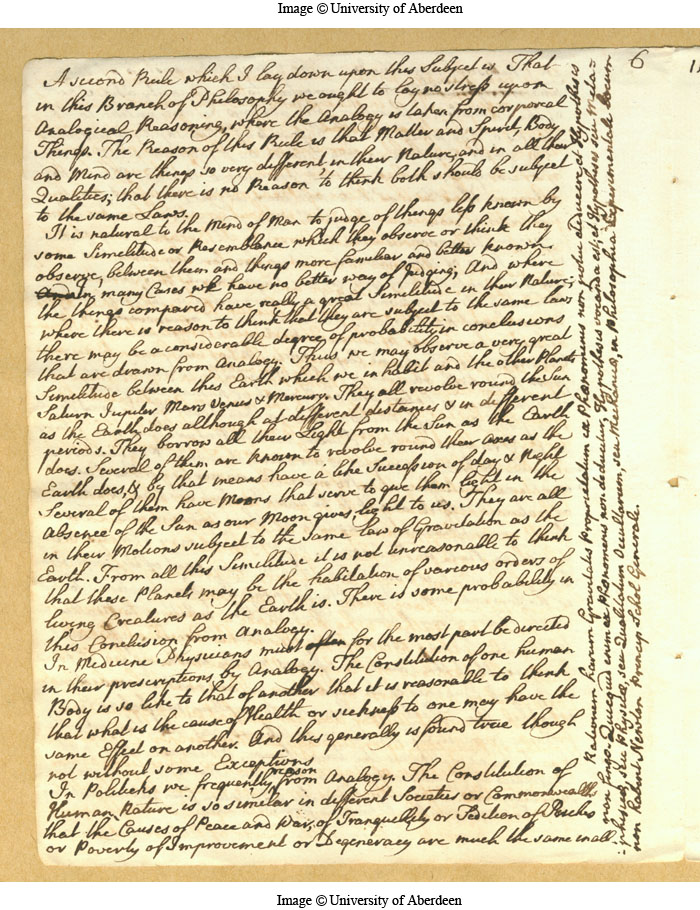 Image © University of Aberdeen
6
A second Rule which I lay down upon this Subject is That
in this Branch of Philosophy we ought to lay no stress upon
Analogical Reasoning, where the Analogy is taken from corporeal
Things. The Reason of this Rule is that Matter and Spirit, Body
and Mind are things so very different in their Nature, and in all their
Qualities, that there is no Reason to think both should be subject
to the same Laws.
It is natural to the Mind of Man to judge of things less known by
some Similitude or Resemblance which they observe or think they
observe, between them and things more familiar and better known
many Cases we have no better way of Judging; And where
the things compared have really a great Similitude in their Nature;
where there is reason to think that they are subject to the same laws
there may be a considerable degree of probability in conclusions
that are drawn from Analogy. Thus we may observe a very great
Similitude between this Earth which we inhabit and the other Planets
Saturn Jupiter Mars Venus & Mercury. They all revolve round the Sun
as the Earth does although at different distances & in different
periods. They borrow all their Light from the Sun as the Earth
does. Several of them are known to revolve round their axes as the
Earth does, & by that means have a like Succession of day & Night
Several of them have Moons that serve to give them light in the
Absence of the Sun as our Moon gives light to us. They are all
in their Motions subject to the same law of Gravitation as the
Earth. From all this Similitude it is not unreasonable to think
that these Planets may be the habitation of various orders of
living Creatures as the Earth is. There is some probability in
this Conclusion from Analogy.
In Medicine Physicians must often for the most part be directed
in their prescriptions by Analogy. The Constitution of one human
Body is so like to that of another that it is reasonable to think
that what is the cause of Health or sickness to one may have the
same Effect on another. And this generally is found true though
not without some Exceptions
In Politicks we frequently reason from Analogy. The Constitution of
Human Nature is so similar in different Societies or Commonwealths
that the Causes of Peace and War, of Tranquility or Sedition of Riches
or Poverty of Improvement or Degeneracy are much the same in all
Rationem harum Gravitatis Proprietatum ex Phænomenis non potui deducere, et Hypothesis
non fingo. Quicquid enim ex Phænomenis non deducitur, Hypothesis vocanda est; et Hypotheses seu Meta=
=physicæ, seu Physicæ, seu Qualitatum Occultarum, seu Mechanicæ, in Philosophia Experimentali locum
non habent. Newton Princip Schol Generale.
Image © University of Aberdeen